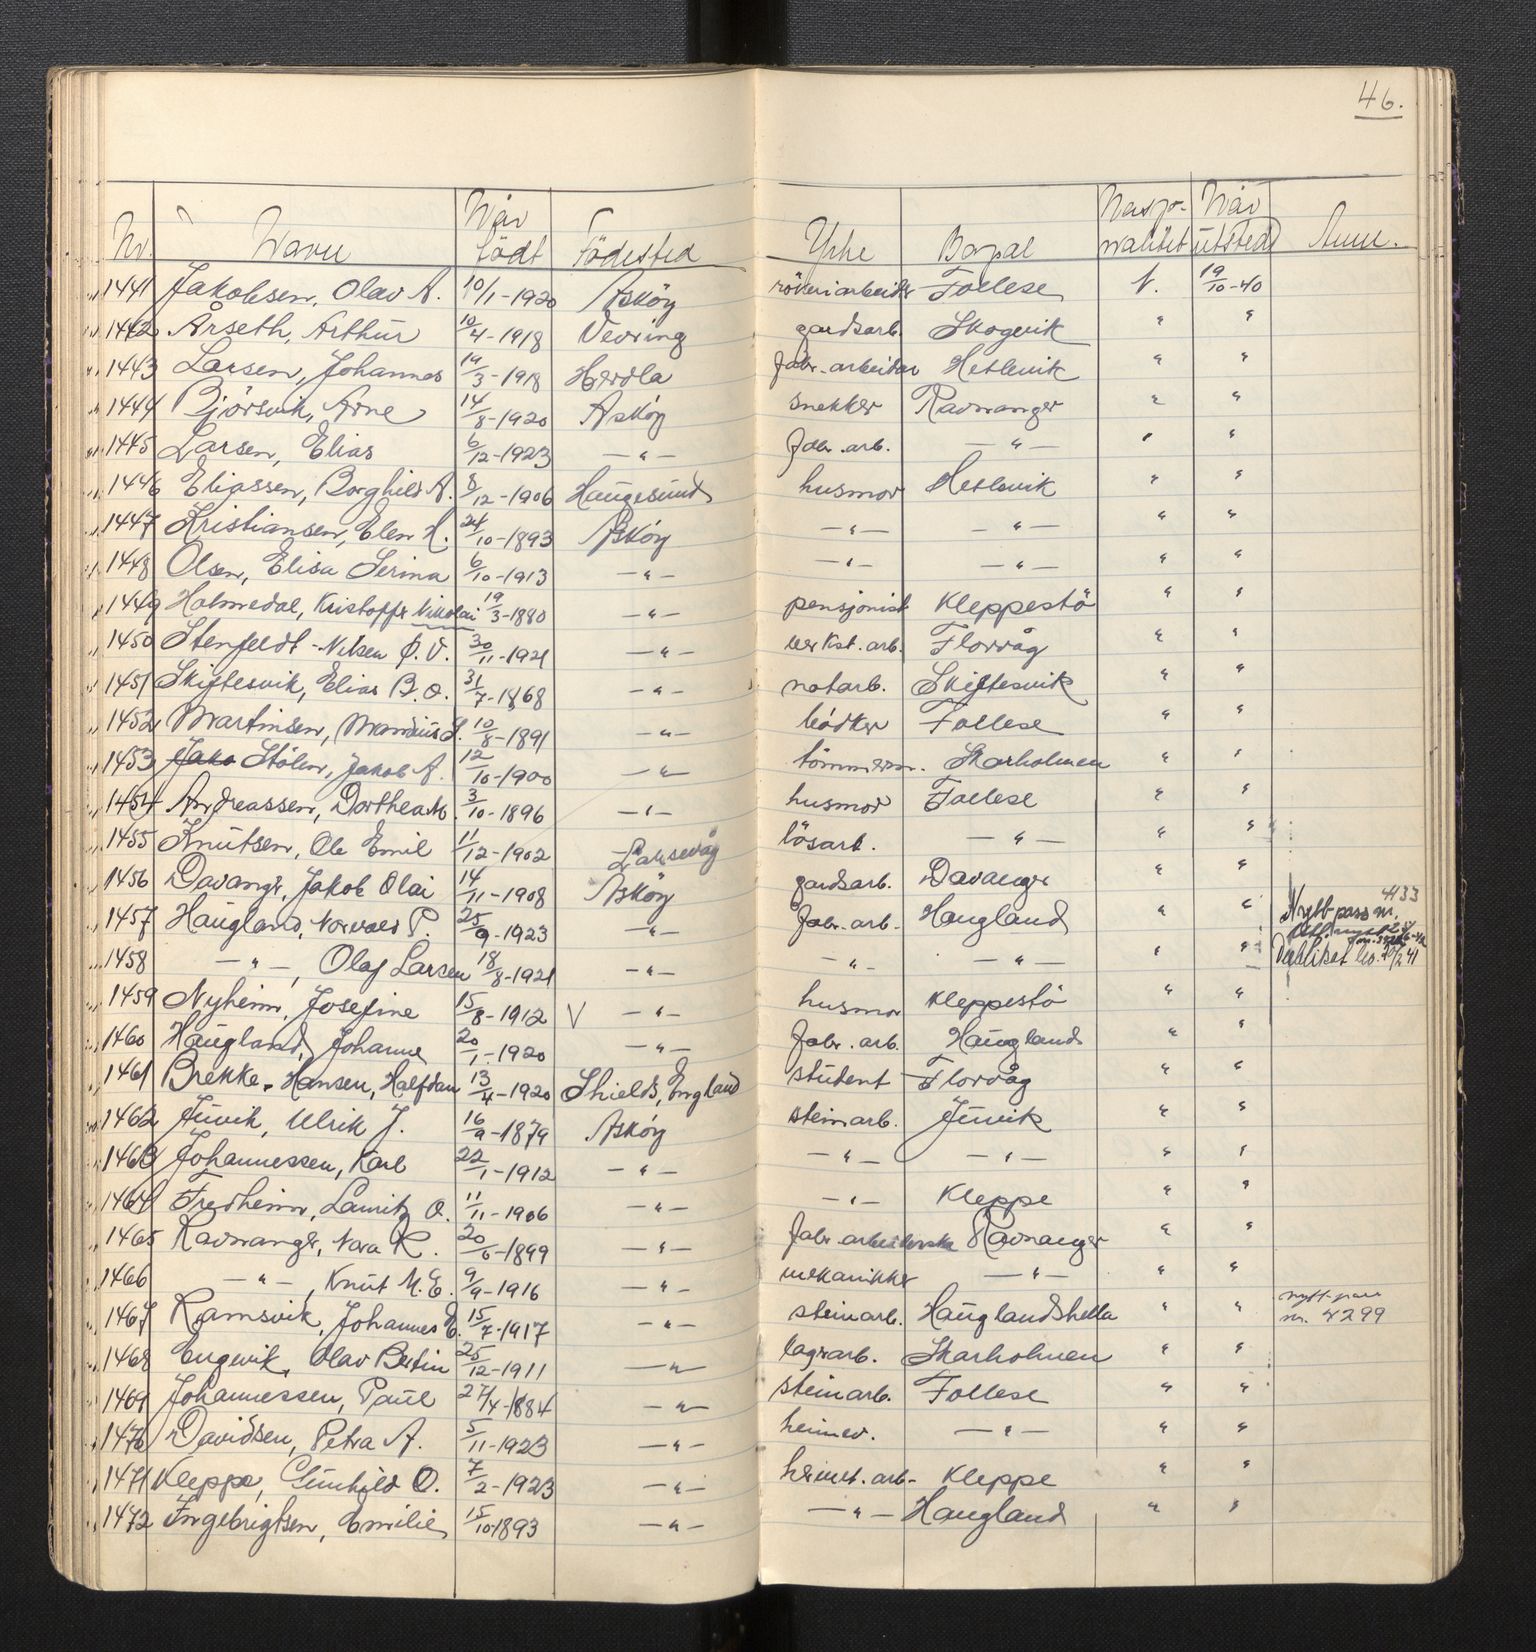 46.
Nr. Navn Når födt Födested Yrke Bopæl Nasjo-nalitet Når utsted Anm.
1441 Jakobsen, Olav A. 10/1-1920 Asköy Follese N. 19/10-40
1442 Årseth, Arthur 10/4-1918 Vevring gardsarb. Skogvik " "
1443 Larsen, Johannes 19/3-1918 Herdla fabr.arbeider Hetlevik " "
1444 Björsvik, Arne 14/8-1920 Asköy snekker Ravnanger " "
1445 Larsen, Elias 6/12-1923 — " — fabr.arb. — " — " "
1446 Eliassen, Borghild A. 8/12-1906 Haugesund husmor Hetlevik " "
1447 Kristiansen, Elen H. 24/10-1893 Asköy — " — — " — " "
1448 Olsen, Elisa Serina 6/10-1913 — " — — " — — " — " "
1449 Holmedal, Kristoffer Nikolai 19/3-1880 — " — pensjonist Kleppestö " "
1450 Stenfeldt-Nilsen Ø.V. 30/11-1921 — " — verkst.arb. Florvåg " "
1451 Skiftesvik, Elias B.O. 31/7-1868 — " — notarb. Skiftesvik " "
1452 Martinsen, Mandius S. 10/8-1891 — " — bödker Follese " "
1453 Jako Stölen, Jakob A. 12/10-1900 — " — tömmerm. Skarholmen " "
1454 Andreassen, Dorthea M. 3/10-1896 — " — husmor Follese " "
1455 Knutsen, Ole Emil 11/12-1902 Laksevåg lösarb. — " — " "
1456 Davanger, Jakob Olai 14/11-1908 Asköy gardsarb. Davanger " "
1457 Haugland, Norvald P. 25/9-1923 — " — fabr.arb. Haugland " " Nytt pass nr. 4133
1458 — " —, Olaf Larsen 18/8-1921 — " — — " — — " — " " Duplikat
1459 Nyheim, Josefine 15/8-1912 V — " — husmor Kleppestö " "
1460 Haugland, Johanne 20/1-1920 — " — fabr.arb. Haugland " "
1461 Brekke-Hansen, Halfdan 13/4-1920 Shields, England student Florvåg " "
1462 Juvik, Ulrik J. 16/9-1879 Asköy steinarb. Juvik " "
1463 Johannessen, Karl 22/1-1912 — " — — " — — " — " "
1464 Fredheim, Lauritz O. 11/11-1906 — " — — " — Kleppe " "
1465 Ravnanger, Nora K. 20/6-1899 — " — fabr.arbeiderske Ravnanger " "
1466 — " —, Knut M.E. 9/9-1916 — " — mekanikker — " — " "
1467 Ramsvik, Johannes E. 15/7-1917 — " — steinarb. Hauglandshella " " nytt pass nr. 4299
1468 Engevik, Olav Bertin 25/12-1911 — " — lagerarb. Skarholmen " "
1469 Johannessen, Paul 27/4-1884 — " — steinarb. Follese " "
1470 Davidsen, Petra A. 5/11-1923 — " — heimev. — " — " "
1471 Kleppe, Gunhild O. 7/2-1923 — " — heimt.arb- Kleppe " "
1472 Ingebrigtsen, Emilie 15/10-1893 — " — — " — Haugland " "